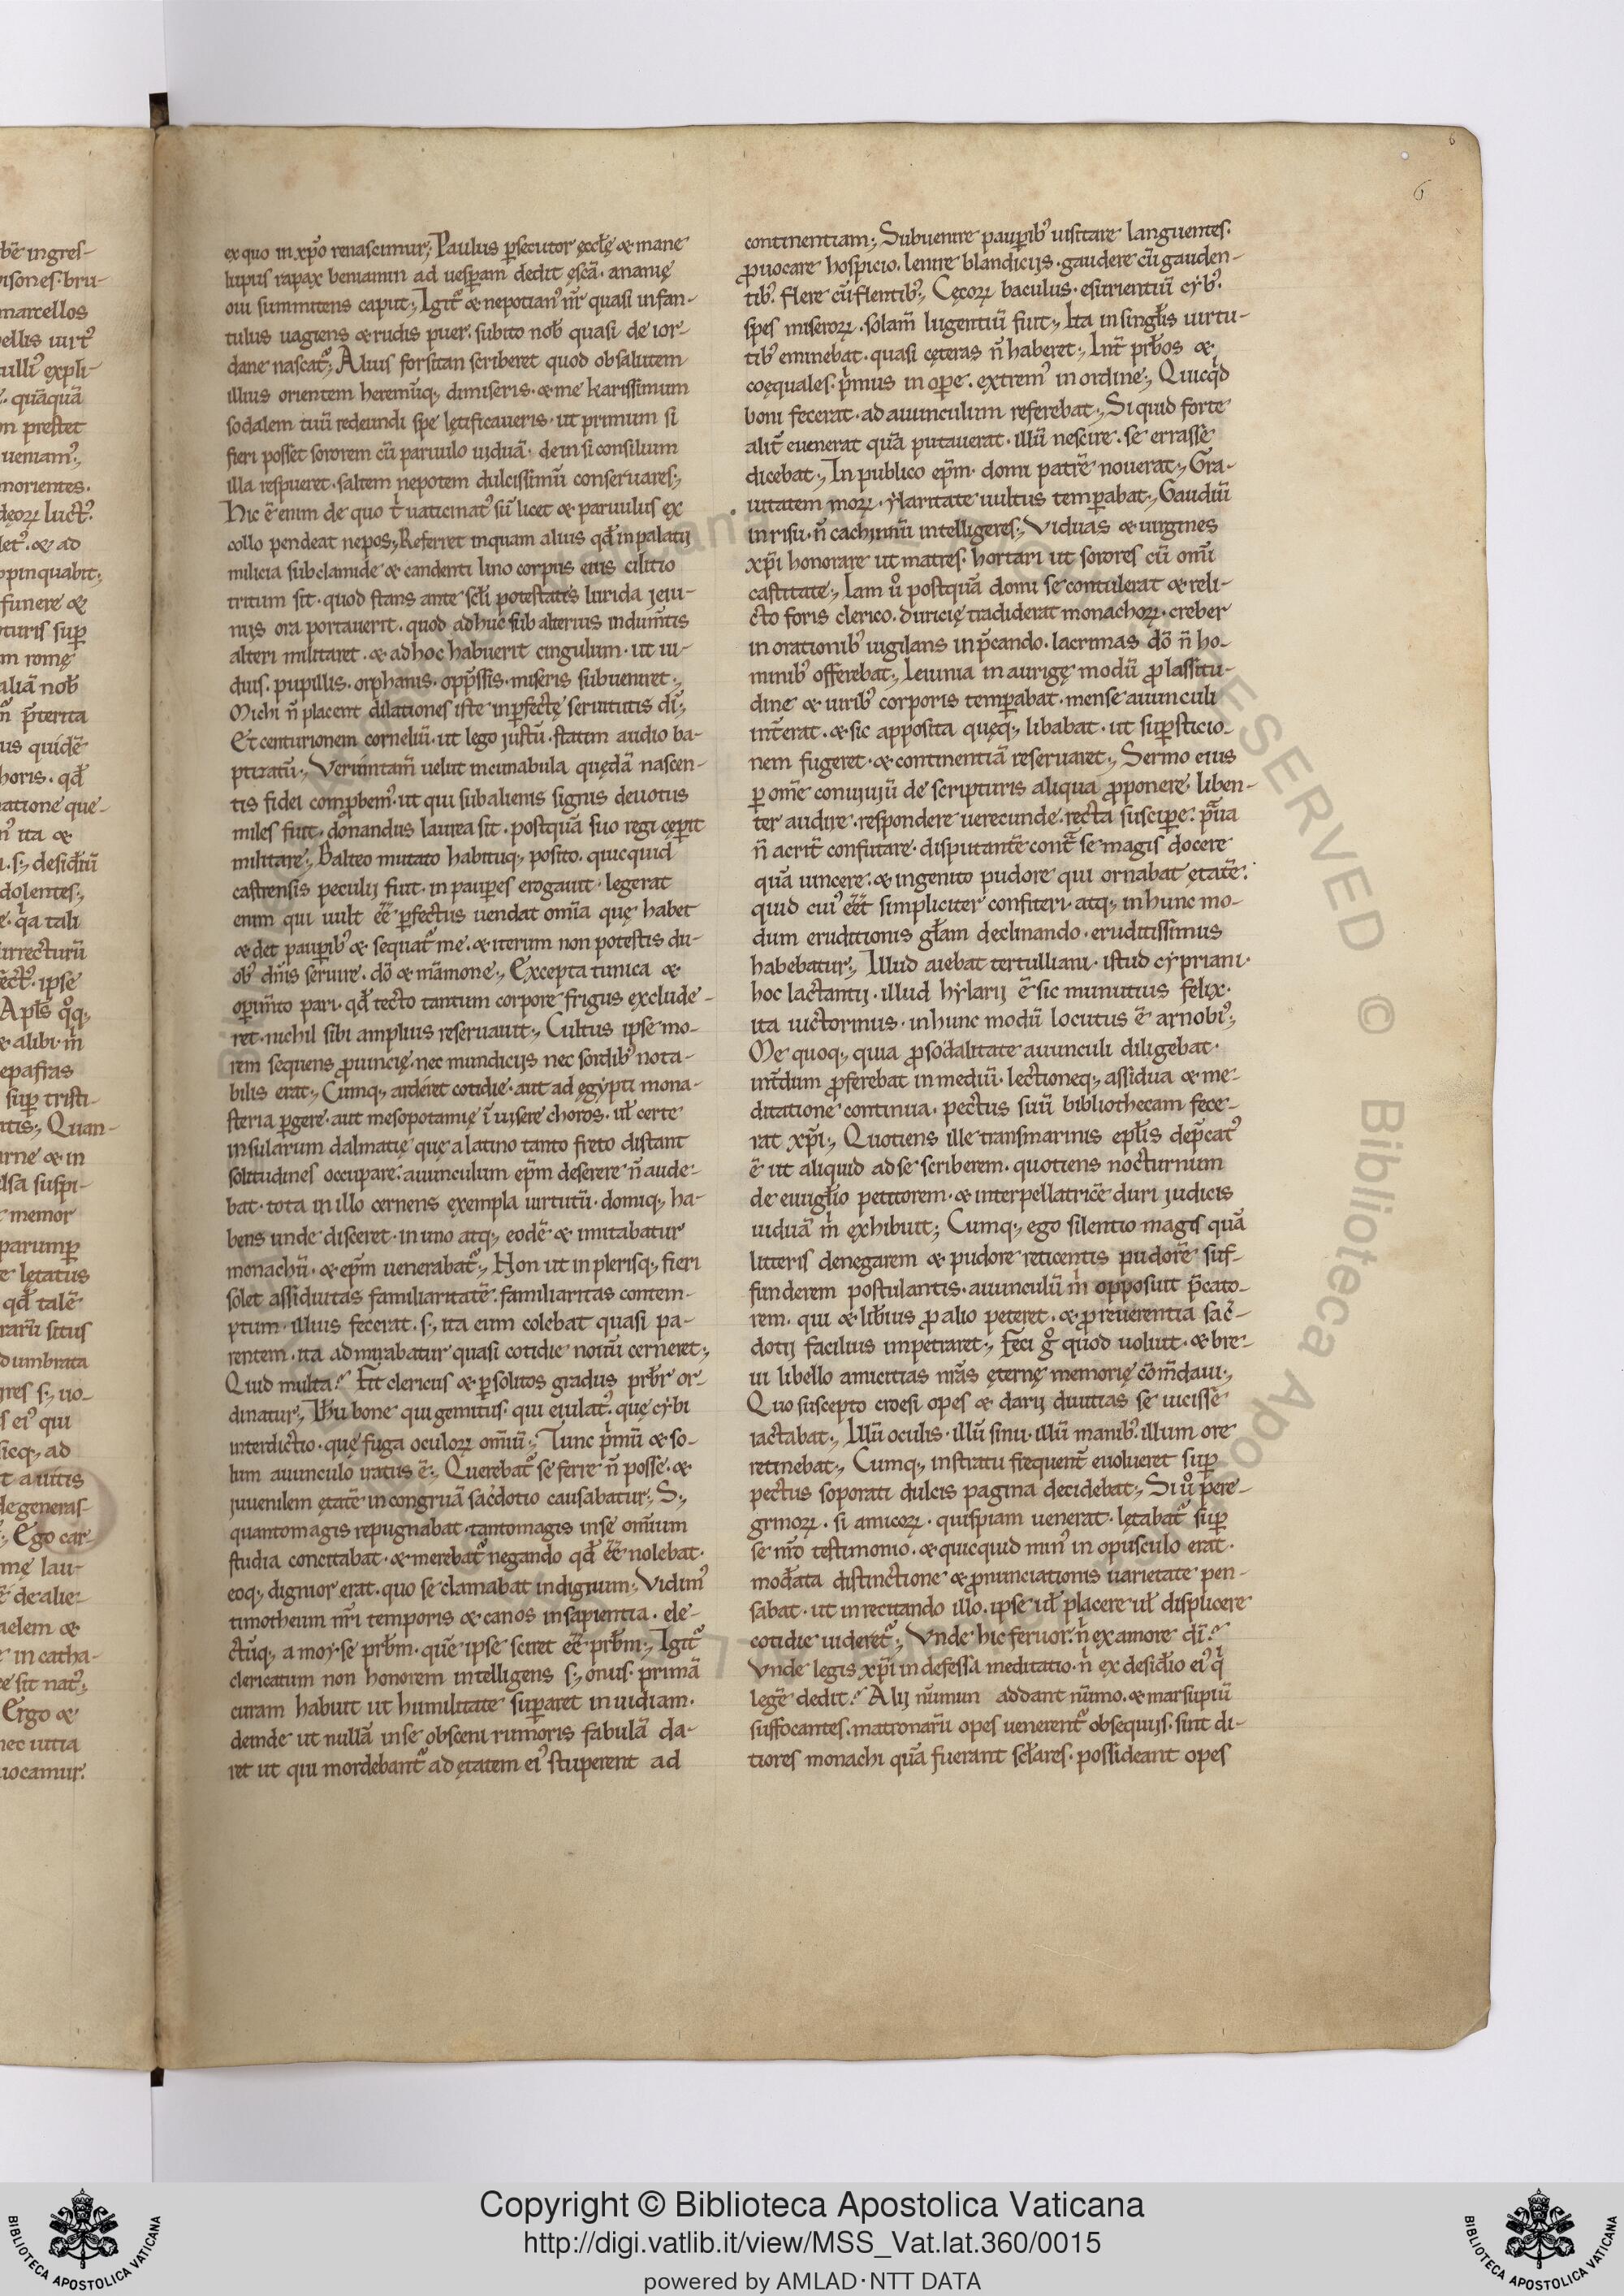 6
6
ex quo in xp̄o renascimur; Paulus ꝑsecutor ęccłę & mane
lupus rapax beniamin ad uesꝑam dedit ęscā. ananię
oui summitens caput; Igit᷑ & nepotian᷒ nr̄ quasi infan-
tulus uagiens & rudis puer. subito nob̄ quasi de ior-
dane nascat᷑; Alius forsitan scriberet quod ob salutem
illius orientem heremūq; dimiseris. & me karissimum
sodalem tuū redeundi spe lętificaueris. ut primum si
fieri posset sororem cū paruulo uiduā. dein si consilium
illa respueret. saltem nepotem dulcissimū conseruares;
Hic ē enim de quo t̍ uaticinat᷒ sū licet & paruulus ex
collo pendeat nepos; Referret inquam alius qđ in palatij
milicia sub clamide & candenti lino corpus eius cilitio
tritum sit. quod stans ante scłi potestates lurida jeiu-
nijs ora portauerit. quod adhuc sub alterius indum̄tis
alteri militaret. & ad hoc habuerit cingulum. ut ui-
duis. pupillis. orphanis. opp̄ssis. miseris subueniret;
Michi n̄ placent dilationes iste inꝑfectę seruitutis dī;
Et centurionem corneliū. ut lego justū. statim audio ba-
ptizatū; Veruntam̄ uelut incunabula quędā nascen-
tis fidei comꝓbem᷒. ut qui sub alienis signis deuotus
miles fuit. donandus laurea sit. postquā suo regi cęꝑit
militare; Balteo mutato habituq; posito. quicquid
castrensis peculij fuit. in pauꝑes erogauit. legerat
enim qui uult ēē ꝑfectus uendat om̄ia quę habet
& det pauꝑib᷒ & sequat᷑ me. & iterum non potestis du-
ob᷒ dn̄is seruire. dō & māmone; Excepta tunica &
oꝑim̄to pari. qđ tecto tantum corpore frigus exclude-
ret. nichil sibi amplius reseruauit; Cultus ipse mo-
rem sequens ꝓuincię. nec mundicijs nec sordib᷒ nota-
bilis erat; Cumq; arderet cotidie. aut ad ęgypti mona-
steria ꝑgere. aut mesopotamię ī uisere choros. uł certe
insularum dalmatię que a latino tanto freto distant
solitudines occupare. auunculum ep̄m deserere n̄ aude-
bat. tota in illo cernens exempla uirtutū. domiq; ha-
bens unde disceret. in uno atq; eodē & imitabatur
monachū. & ep̄m uenerabat᷑; Non ut in plerisq; fieri
solet assiduitas familiaritatē. familiaritas contem-
ptum. illius fecerat. s; ita eum colebat quasi pa-
rentem. ita admirabatur quasi cotidie nouū cerneret;
Quid multa? Fit clericus & ꝑ solitos gradus prb̄r or-
dinatur; Ih̄u bone qui gemitus. qui eiulat᷒. quę cybi
interdictio. quę fuga oculoꝝ om̄iū; Tunc p̍mū & so-
lum auunculo iratus ē; Querebat᷑ se ferre n̄ posse. &
juuenilem ętatē incongruā sac̄dotio causabatur; S;
quantomagis repugnabat. tantomagis in se om̄ium
studia concitabat. & merebat᷑ negando qđ ēē nolebat.
eoq; dignior erat. quo se clamabat indignum; Vidim᷒
timotheum nr̄i temporis & canos in sapientia. ele-
ctūq; a moyse prb̄m. quē ipse sciret ēē prb̄m; Igit᷑
clericatum non honorem intelligens s; onus. primā
curam habuit ut humilitate suꝑaret inuidiam.
deinde ut nullā in se obsceni rumoris fabulā da-
ret ut qui mordebant᷑ ad ętatem ei᷒ stuperent ad
continentiam; Subuenire pauꝑib᷒ uisitare languentes.
ꝓuocare hospicio. lenire blandicijs. gaudere cū gauden-
tib᷒. flere cū flentib᷒; Cęcoꝝ baculus. esurientiū cyb᷒.
spes miseroꝝ. solam̄ lugentiū fuit; Ita in singłis uirtu-
tib᷒ eminebat. quasi cęteras n̄ haberet; Int̄ prb̄os &
coęquales. p̍mus in oꝑe. extrem᷒ in ordine; Quicq̍d
boni fecerat. ad auunculum referebat; Si quid forte
alit̄ euenerat quā putauerat. illū nescire. se errasse
dicebat; In publico ep̄m. domi patrē nouerat; Gra-
uitatem moꝝ. ylaritate uultus temꝑabat; Gaudiū
in risu. n̄ cachinnū intelligeres; Viduas & uirgines
xp̄i honorare ut matres. hortari ut sorores cū om̄i
castitate; Iam ů postquā domi se contulerat & reli-
cto foris clerico. duricię tradiderat monachoꝝ. creber
in orationib᷒ uigilans in p̄cando. lacrimas dō n̄ ho-
minib᷒ offerebat; Ieiunia in aurigę modū ꝓ lassitu-
dine & uirib᷒ corporis temꝑabat. mense auunculi
int̄erat. & sic apposita quęq; libabat. ut suꝑsticio-
nem fugeret. & continentiā reseruaret; Sermo eius
ꝑ om̄e conuiuiū de scripturis aliqua ꝓponere. liben-
ter audire. respondere uerecunde. recta susciꝑe. p̄ua
n̄ acrit̄ confutare. disputantē cont̄ se magis docere
quā uincere. & ingenito pudore qui ornabat ętatē.
quid cui᷒ ēēt simpliciter confiteri. atq; in hunc mo-
dum eruditionis głam declinando. eruditissimus
habebatur; Illud aiebat tertulliani. istud cypriani.
hoc lactantij. illud hylarij ē sic munutius felix.
ita uictorinus. in hunc modū locutus ē arnobi᷒;
Me quoq; quia ꝓ sodalitate auunculi diligebat.
int̄dum ꝓferebat in mediū. lectioneq; assidua & me-
ditatione continua. pectus suū bibliothecam fece-
rat xp̄i; Quotiens ille transmarinis epłis dep̄cat᷒
ē ut aliquid ad se scriberem. quotiens nocturnum
de euuigłio petitorem. & interpellatricē duri judicis
uiduā m̍ exhibuit; Cumq; ego silentio magis quā
litteris denegarem & pudore reticentis pudorē suf-
funderem postulantis. auunculū m̍ opposuit p̄cato-
rem. qui & lib̄ius ꝓ alio peteret. & ꝓ reuerentia sac̄-
dotij facilius impetraret; Feci g̊ quod uoluit. & bre-
ui libello amicitias nr̄as ęternę memorię cōm̄daui;
Quo suscepto croesi opes & darij diuitias se uicissē
iactabat; Illū oculis. illū sinu. illū manib᷒. illum ore
retinebat; Cumq; in stratu frequent̄ euolueret suꝑ
pectus soporati dulcis pagina decidebat; Si ů pere-
grinoꝝ. si amicoꝝ. quispiam uenerat. lętabat᷑ suꝑ
se nr̄o testimonio. & quicquid min᷒ in opusculo erat.
mod̄ata distinctione & ꝓnunciationis uarietate pen-
sabat. ut in recitando illo. ipse uł placere uł displicere
cotidie uideret᷑; Vnde hic feruor. n̍ ex amore dī?
Vnde legis xp̄i indefessa meditatio. n̍ ex desid̄io ei᷒ q̍
legē dedit? Alij nūmun addant nūmo. & marsupiū
suffocantes. matronarū opes uenerent᷑ obsequijs. sint di-
tiores monachi quā fuerant scłares. possideant opes
Copyright © Biblioteca Apostolica Vaticana
http://digi.vatlib.it/view/MSS_Vat.lat.360/0015
powered by AMLAD·NTT DATA
BIBLIOTECA APOSTOLICA VATICANA
BIBLIOTECA APOSTOLICA VATICANA